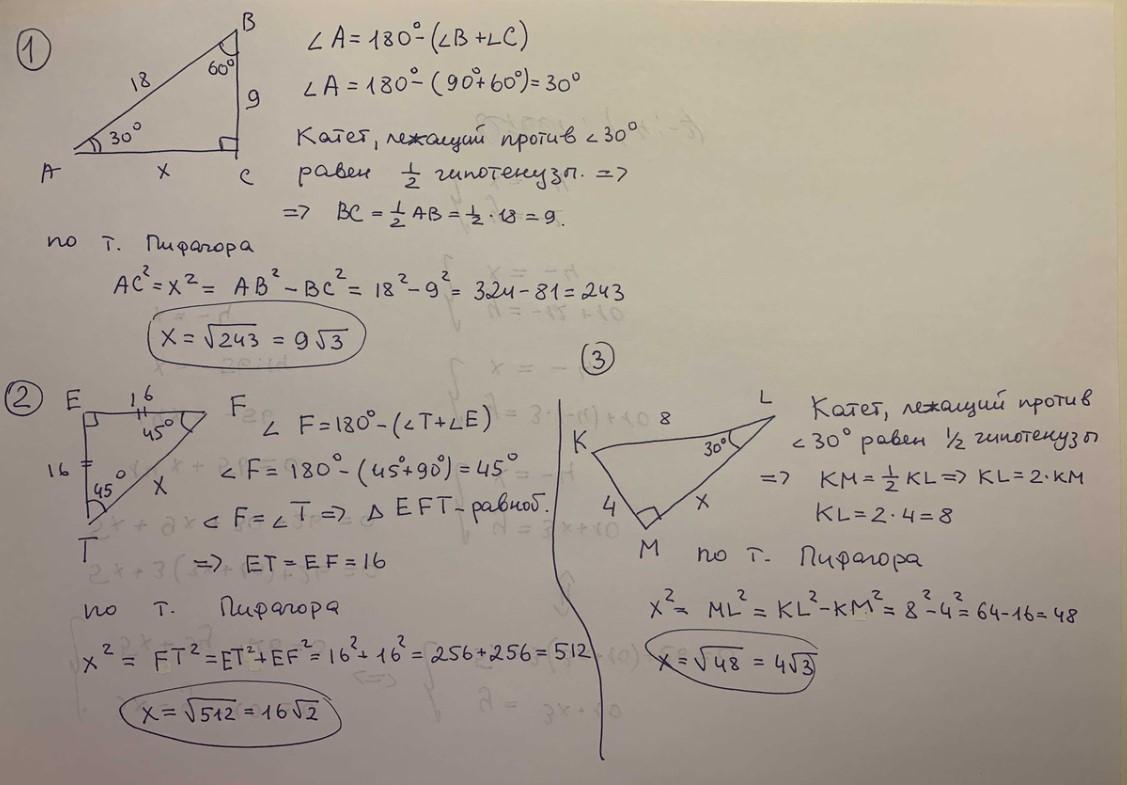 1
B
60°
18
9
30°
A
x
C
∠A = 180° - (∠B + ∠C)
∠A = 180° - (90° + 60°) = 30°
Катет, лежащий против ∠30°
равен 1/2 гипотенузы. =>
=> BC = 1/2 AB = 1/2 · 18 = 9.
по т. Пифагора
AC² = x² = AB² - BC² = 18² - 9² = 324 - 81 = 243
x = √243 = 9√3
2
E
16
F
45°
16
45°
x
T
∠ F = 180° - (∠T + ∠E)
∠F = 180° - (45° + 90°) = 45°
∠F = ∠T => △ EFT - равноб.
=> ET = EF = 16
по т. Пифагора
x² = FT² = ET² + EF² = 16² + 16² = 256 + 256 = 512
x = √512 = 16√2
3
L
8
K
30°
4
x
M
Катет, лежащий против
∠30° равен 1/2 гипотенузы
=> KM = 1/2 KL => KL = 2·KM
KL = 2 · 4 = 8
по т. Пифагора
x² = ML² = KL² - KM² = 8² - 4² = 64 - 16 = 48
x = √48 = 4√3